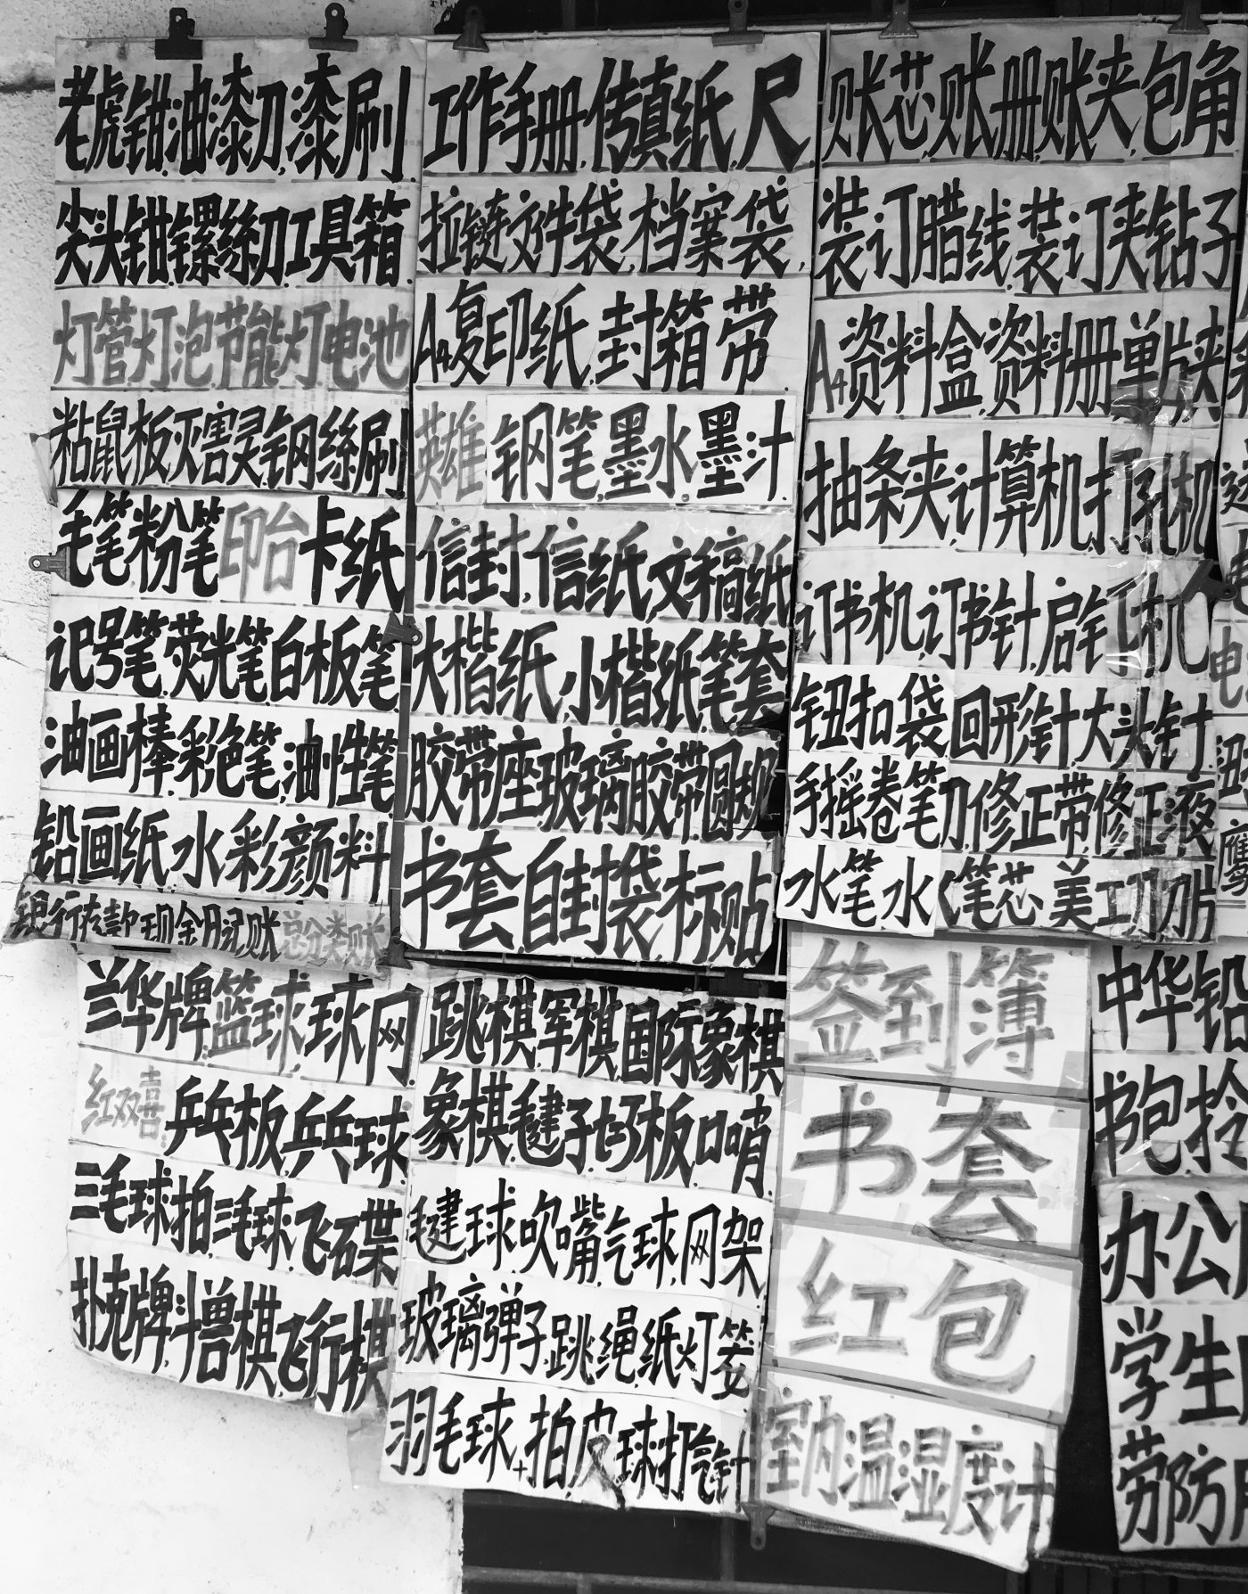 老虎钳.油漆刀.漆刷.
尖头钳.镙絲刀工具箱
灯管灯泡节能灯电池
粘鼠板灭害灵钢絲刷
毛笔粉笔印台卡纸
记号笔.荧光笔白板笔
油画棒彩色笔油性笔
铅画纸水彩颜料
银行存款现金日记账总分类账
兰华牌篮球.球网
红双喜:乒乓板.乒乓球.
三毛球拍三毛球.飞碟
扑克牌.斗兽棋.飞行棋
工作手册.传真纸.尺
拉链文件袋.档案袋.
A4复印纸.封箱带
英雄钢笔.墨水.墨汁
信封.信纸.文稿纸
大楷纸.小楷纸.笔套
胶带座玻璃胶带.圆规
书套自封袋标贴
跳棋.军棋.国际象棋
象棋.毽子.巧板.口哨
毽球.吹嘴.气球.网架
玻璃弹子.跳绳.纸灯笼
羽毛球+拍皮球打气针
账芯.账册.账夹.包角
装订腊线.装订夹钻子
A4资料盒.资料册单片夹
抽条夹计算机.打孔机
订书机.订书针.启钉机
钮扣袋回形针大头针
手摇卷笔刀修正带修正液
水笔水笔芯美工刀刀片
签到簿
书套
红包
室内温湿度计
电
中华铅
书包拎
办公
学生
劳防